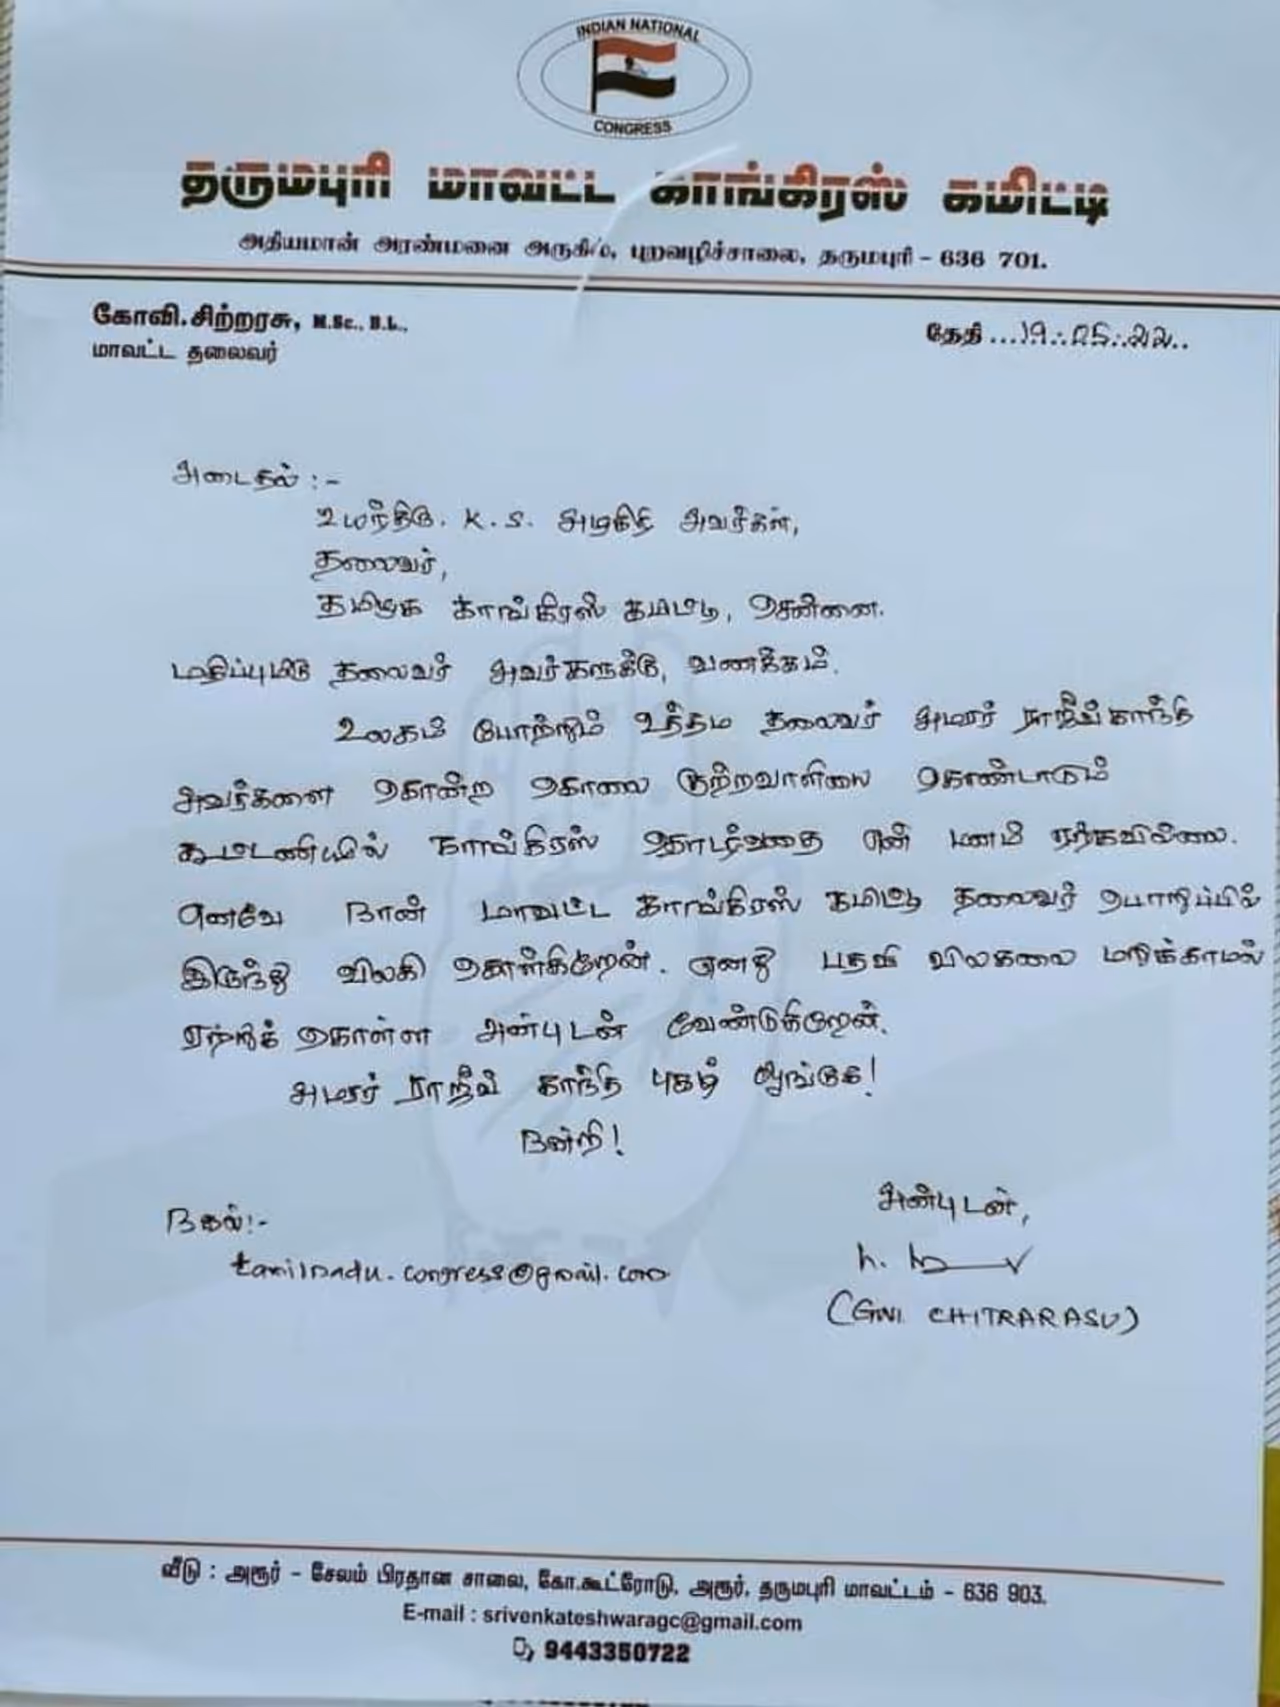 INDIAN NATIONAL
CONGRESS
தருமபுரி மாவட்ட காங்கிரஸ் கமிட்டி
அதியமான் அரண்மனை அருகில், புறவழிச்சாலை, தருமபுரி - 636 701.
கோவி.சிற்றரசு, M.Sc., B.L.,
மாவட்ட தலைவர்
தேதி ...19.05.22..
அடைதல் :-
உயர்திரு. K. S. அழகிரி அவர்கள்,
தலைவர்,
தமிழக காங்கிரஸ் கமிட்டி, சென்னை.
மதிப்புமிகு தலைவர் அவர்களுக்கு, வணக்கம்.
உலகம் போற்றும் உத்தம தலைவர் அமரர் ராஜீவ் காந்தி
அவர்களை கொன்ற கொலை குற்றவாளியை கொண்டாடும்
கூட்டணியில் காங்கிரஸ் தொடர்வதை என் மனம் ஏற்கவில்லை.
எனவே நான் மாவட்ட காங்கிரஸ் கமிட்டி தலைவர் பொறுப்பில்
இருந்து விலகி கொள்கிறேன். எனது பதவி விலகலை மறுக்காமல்
ஏற்றுக் கொள்ள அன்புடன் வேண்டுகிறேன்.
அமரர் ராஜீவ் காந்தி புகழ் ஓங்குக!
நன்றி!
நகல்:-
tamilnadu.congress@gmail.com
அன்புடன்,
(GOVI. CHITRARASU)
வீடு : அரூர் - சேலம் பிரதான சாலை, கோ.கூட்ரோடு, அரூர், தருமபுரி மாவட்டம் - 636 903.
E-mail : srivenkateshwaragc@gmail.com
9443350722